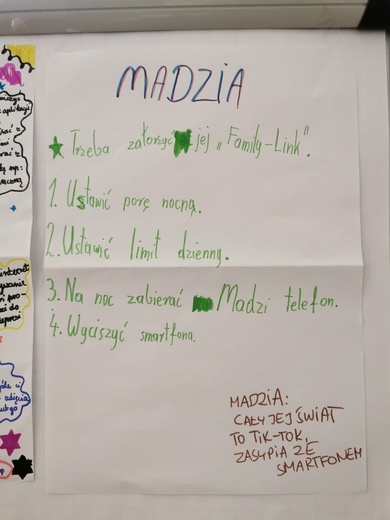 MADZIA
Trzeba założyć jej „Family-Link".
1. Ustawić porę nocną.
2. Ustawić limit dzienny.
3. Na noc zabierać Madzi telefon.
4. Wyciszyć smartfona.
MADZIA:
CAŁY JEJ ŚWIAT
TO TIK-TOK,
ZASYPIA ZE
SMARTFONEM